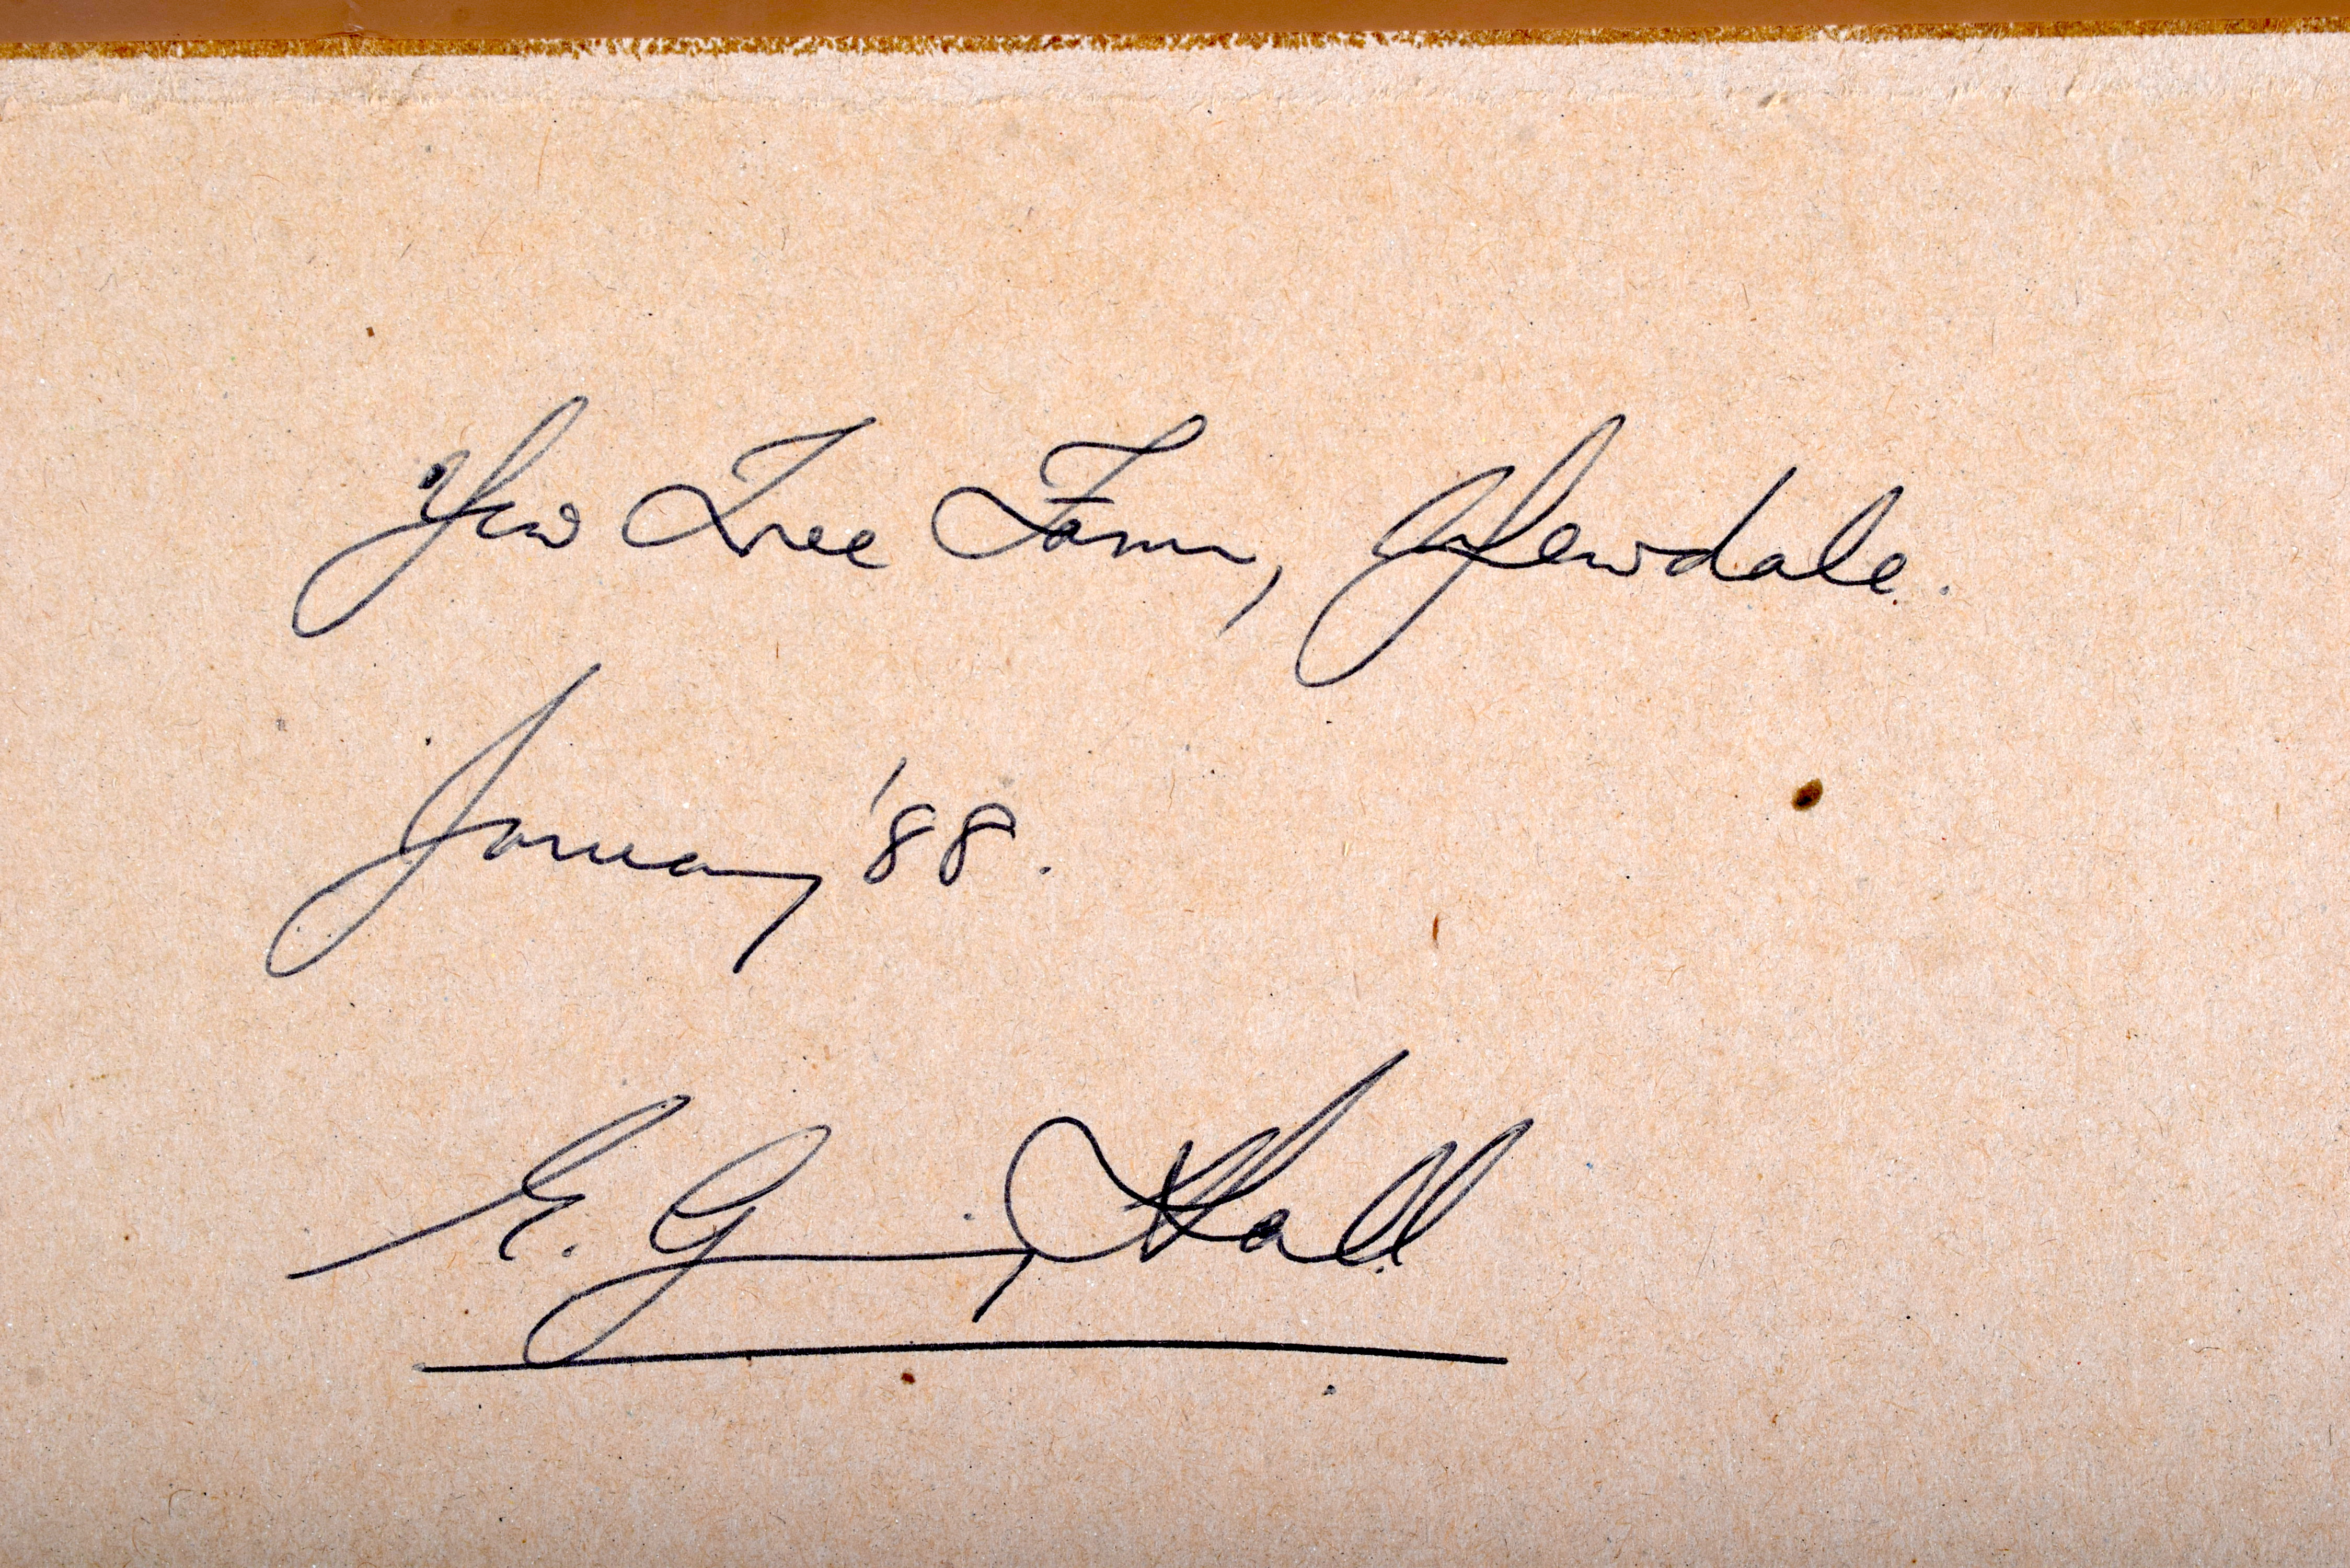 Yew Tree Farm, Yewdale.
January '88.
E. G Hall